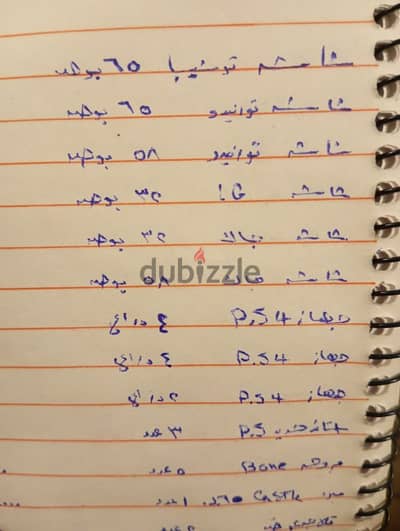 شاشه توشيبا ٦٥ بوصه
شاشه تورنيدو ٦٥ بوصه
شاشه تورنيدو ٥٨ بوصه
شاشه LG ٣٢ بوصه
شاشه جاك ٣٢ بوصه
dubizzle
شاشه جاك ٥٨ بوصه
جهاز P.S4 ٤ دراع
جهاز P.S4 ٤ دراع
جهاز P.S4 ٢ دراع
P.S ٣ عدد
مروحه Bone ٥ عدد
Castle عدد